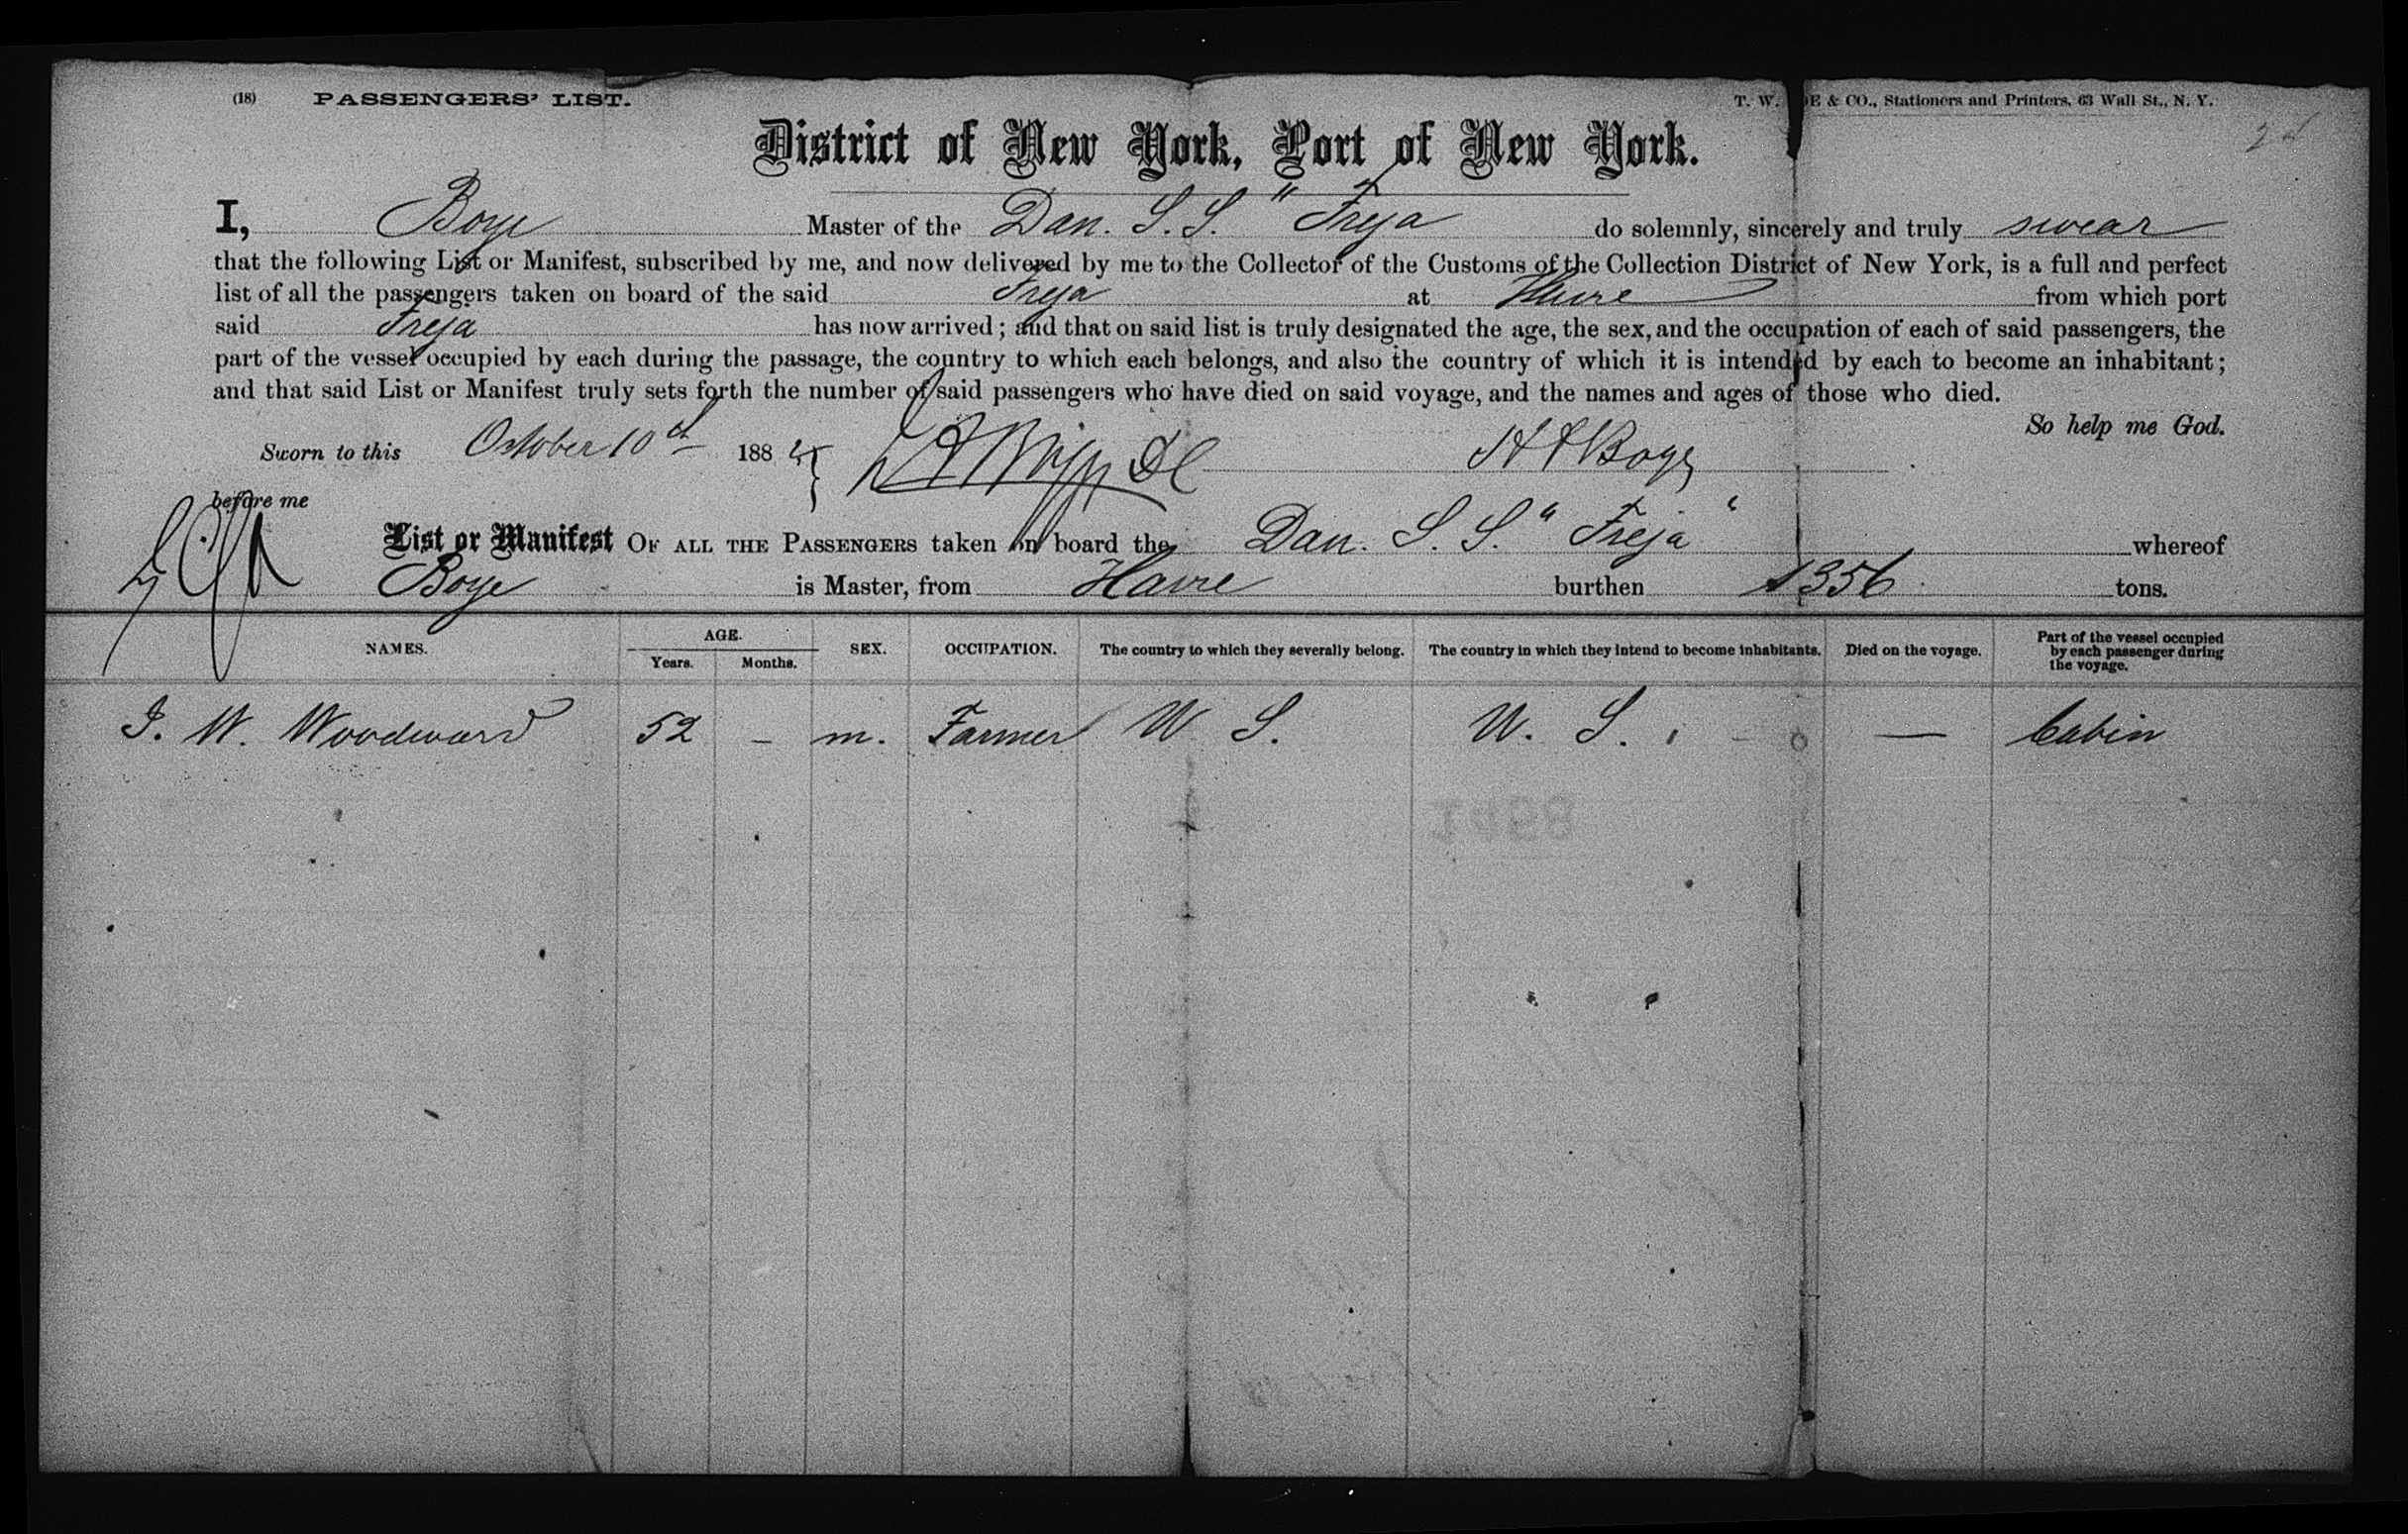 (18) PASSENGERS' LIST. T. W. & CO., Stationers and Printers, 63 Wall St., N. Y.
District of New York, Port of New York.
I, Boye Master of the Dan. S. S. "Freja do solemnly, sincerely and truly swear
that the following List or Manifest, subscribed by me, and now delivered by me to the Collector of the Customs of the Collection District of New York, is a full and perfect
list of all the passengers taken on board of the said Freja at Havre from which port
said Freja has now arrived; and that on said list is truly designated the age, the sex, and the occupation of each of said passengers, the
part of the vessel occupied by each during the passage, the country to which each belongs, and also the country of which it is intended by each to become an inhabitant;
and that said List or Manifest truly sets forth the number of said passengers who have died on said voyage, and the names and ages of those who died.
So help me God.
Sworn to this October 10th 188 Boye
before me
List or Manifest OF ALL THE PASSENGERS taken on board the Dan. S. S. "Freja" whereof
Boye is Master, from Havre burthen 1356 tons.
NAMES. AGE. Years. Months. SEX. OCCUPATION. The country to which they severally belong. The country in which they intend to become inhabitants. Died on the voyage. Part of the vessel occupied by each passenger during the voyage.
J. W. Woodward 52 – m. Farmer U S. U. S. — Cabin